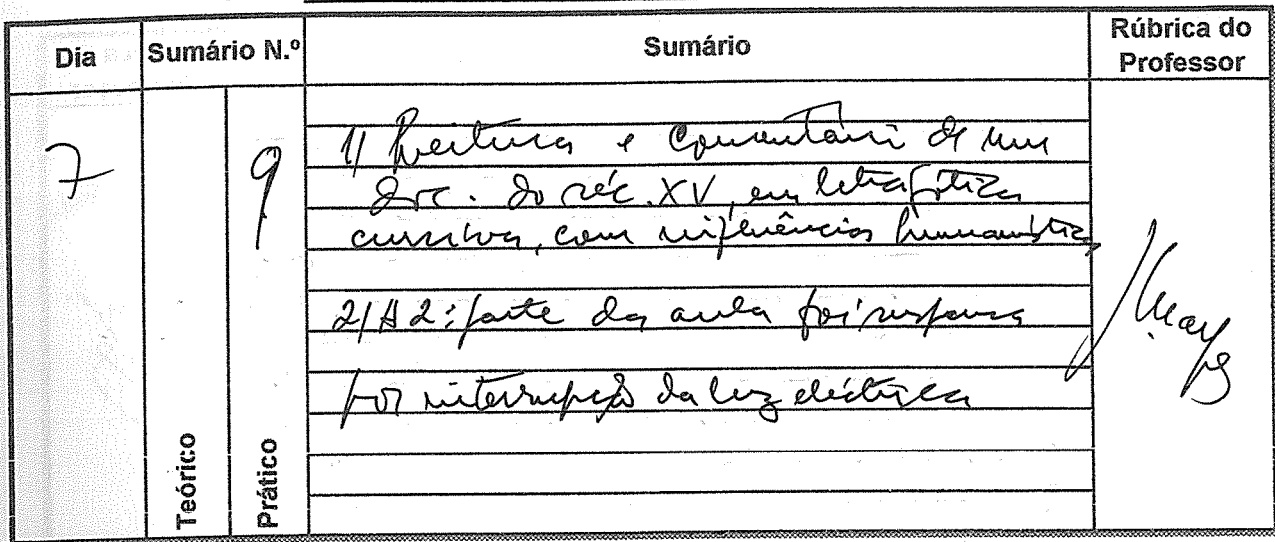 Dia Sumário N.º Sumário Rúbrica do Professor
7 9 1) Leitura e comentário de um
doc. do séc. XV, em letra gótica
cursiva, com influências humanísticas
2) A 2ª parte da aula foi suspensa
por interrupção da luz eléctrica
Teórico Prático